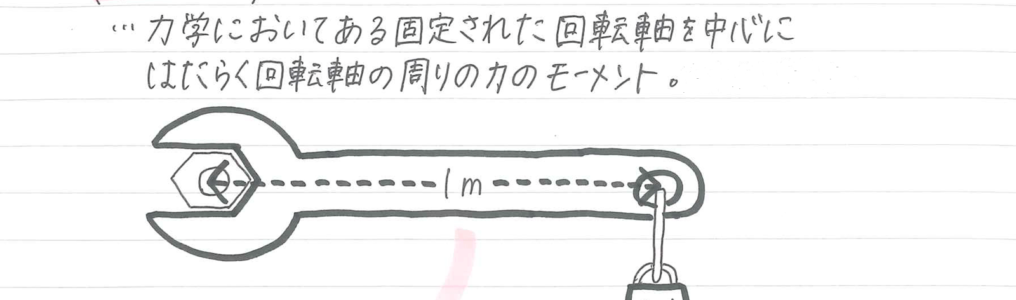 …力学においてある固定された回転軸を中心に
はたらく回転軸の周りの力のモーメント。
1m